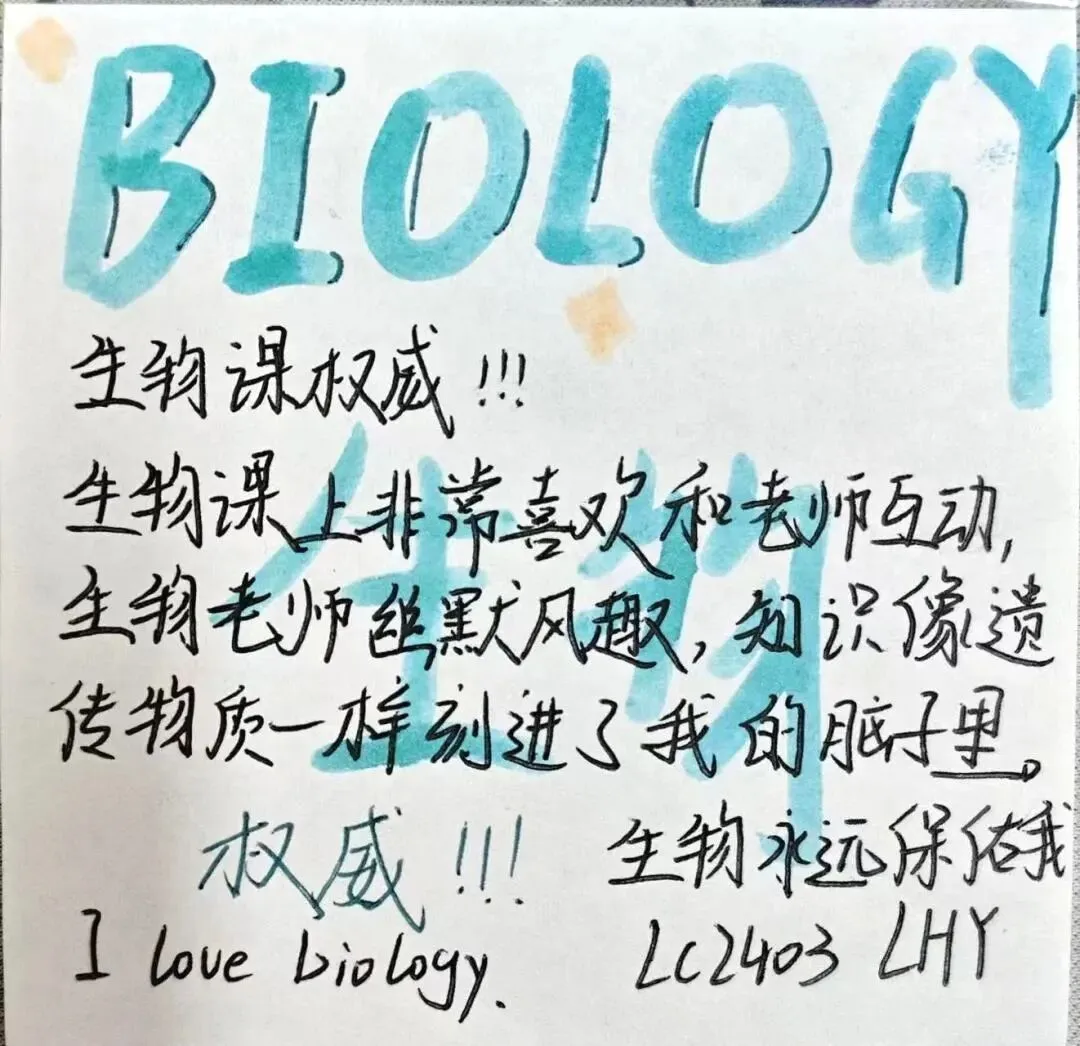 BIOLOGY
生物课权威!!!
生物
生物课上非常喜欢和老师互动,
生物老师幽默风趣,知识像遗
传物质一样刻进了我的脑子里。
权威!!!
生物永远保佑我
I love biology.
LC2403 LHY